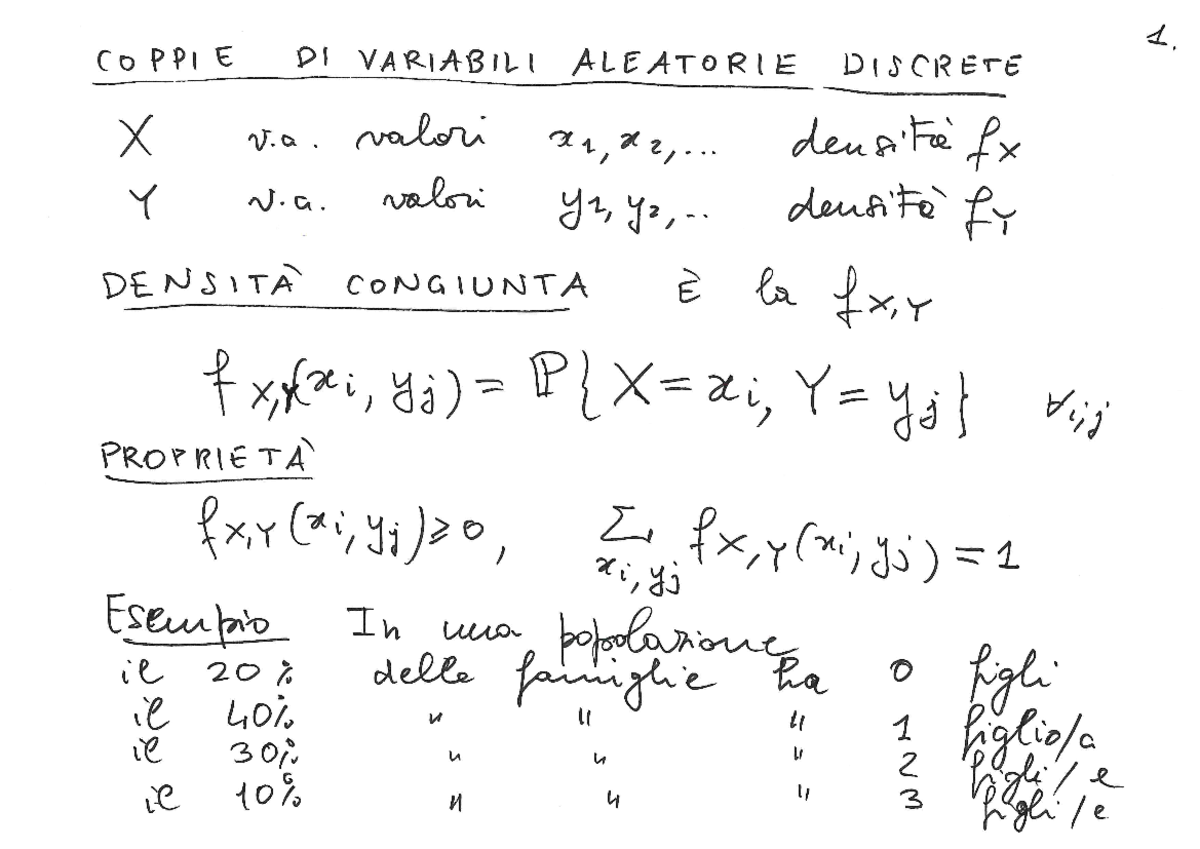 1.
COPPIE DI VARIABILI ALEATORIE DISCRETE
X v.a. valori x1, x2, ... densità fX
Y v.a. valori y1, y2, .. densità fY
DENSITÀ CONGIUNTA È la fX,Y
fX,Y(xi, yj) = ℙ{X = xi, Y = yj} ∀i,j
PROPRIETÀ
fX,Y(xi, yj) ⩾ 0, Σxi, yj fX,Y(xi, yj) = 1
Esempio In una popolazione
il 20% delle famiglie ha 0 figli
il 40% " " " 1 figlio/a
il 30% " " " 2 figli/e
il 10% " " " 3 figli/e